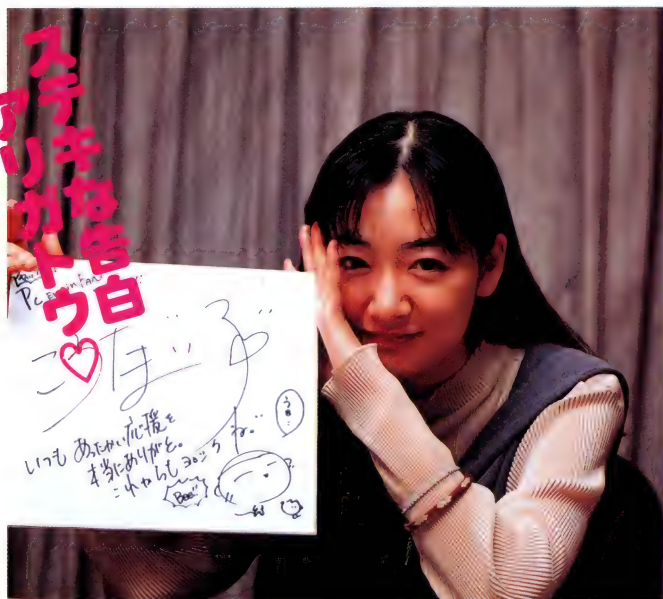 ステキな告白
アリガトウ♡
PC Engine FAN
いつも あったかい応援を
本当にありがと。
これからもヨロシク
ね。
うぉ…
Bee!!